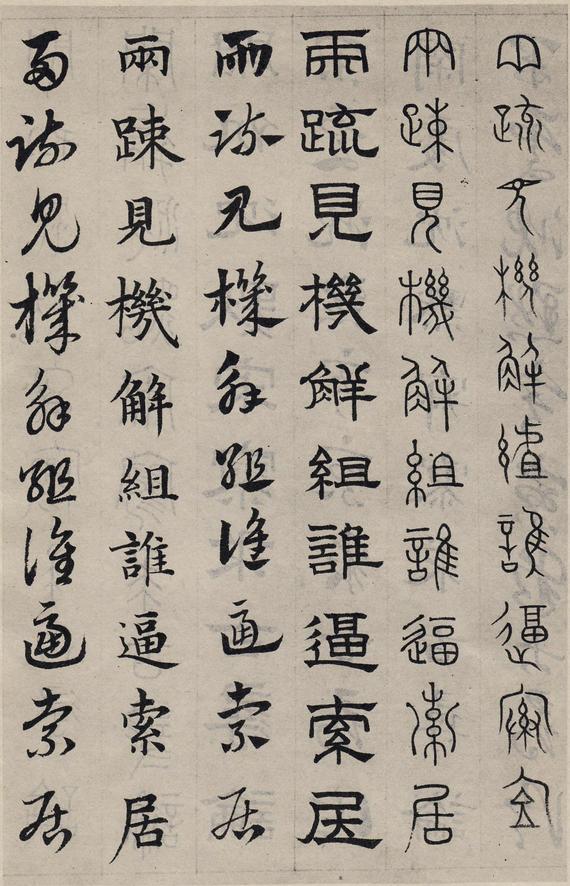 兩疏見機解組誰逼索居
兩疎見機解組誰逼索居
兩疏見機解組誰逼索居
兩疎見機解組誰逼索居
兩疎見機解組誰逼索居
兩疏見機解組誰逼索居